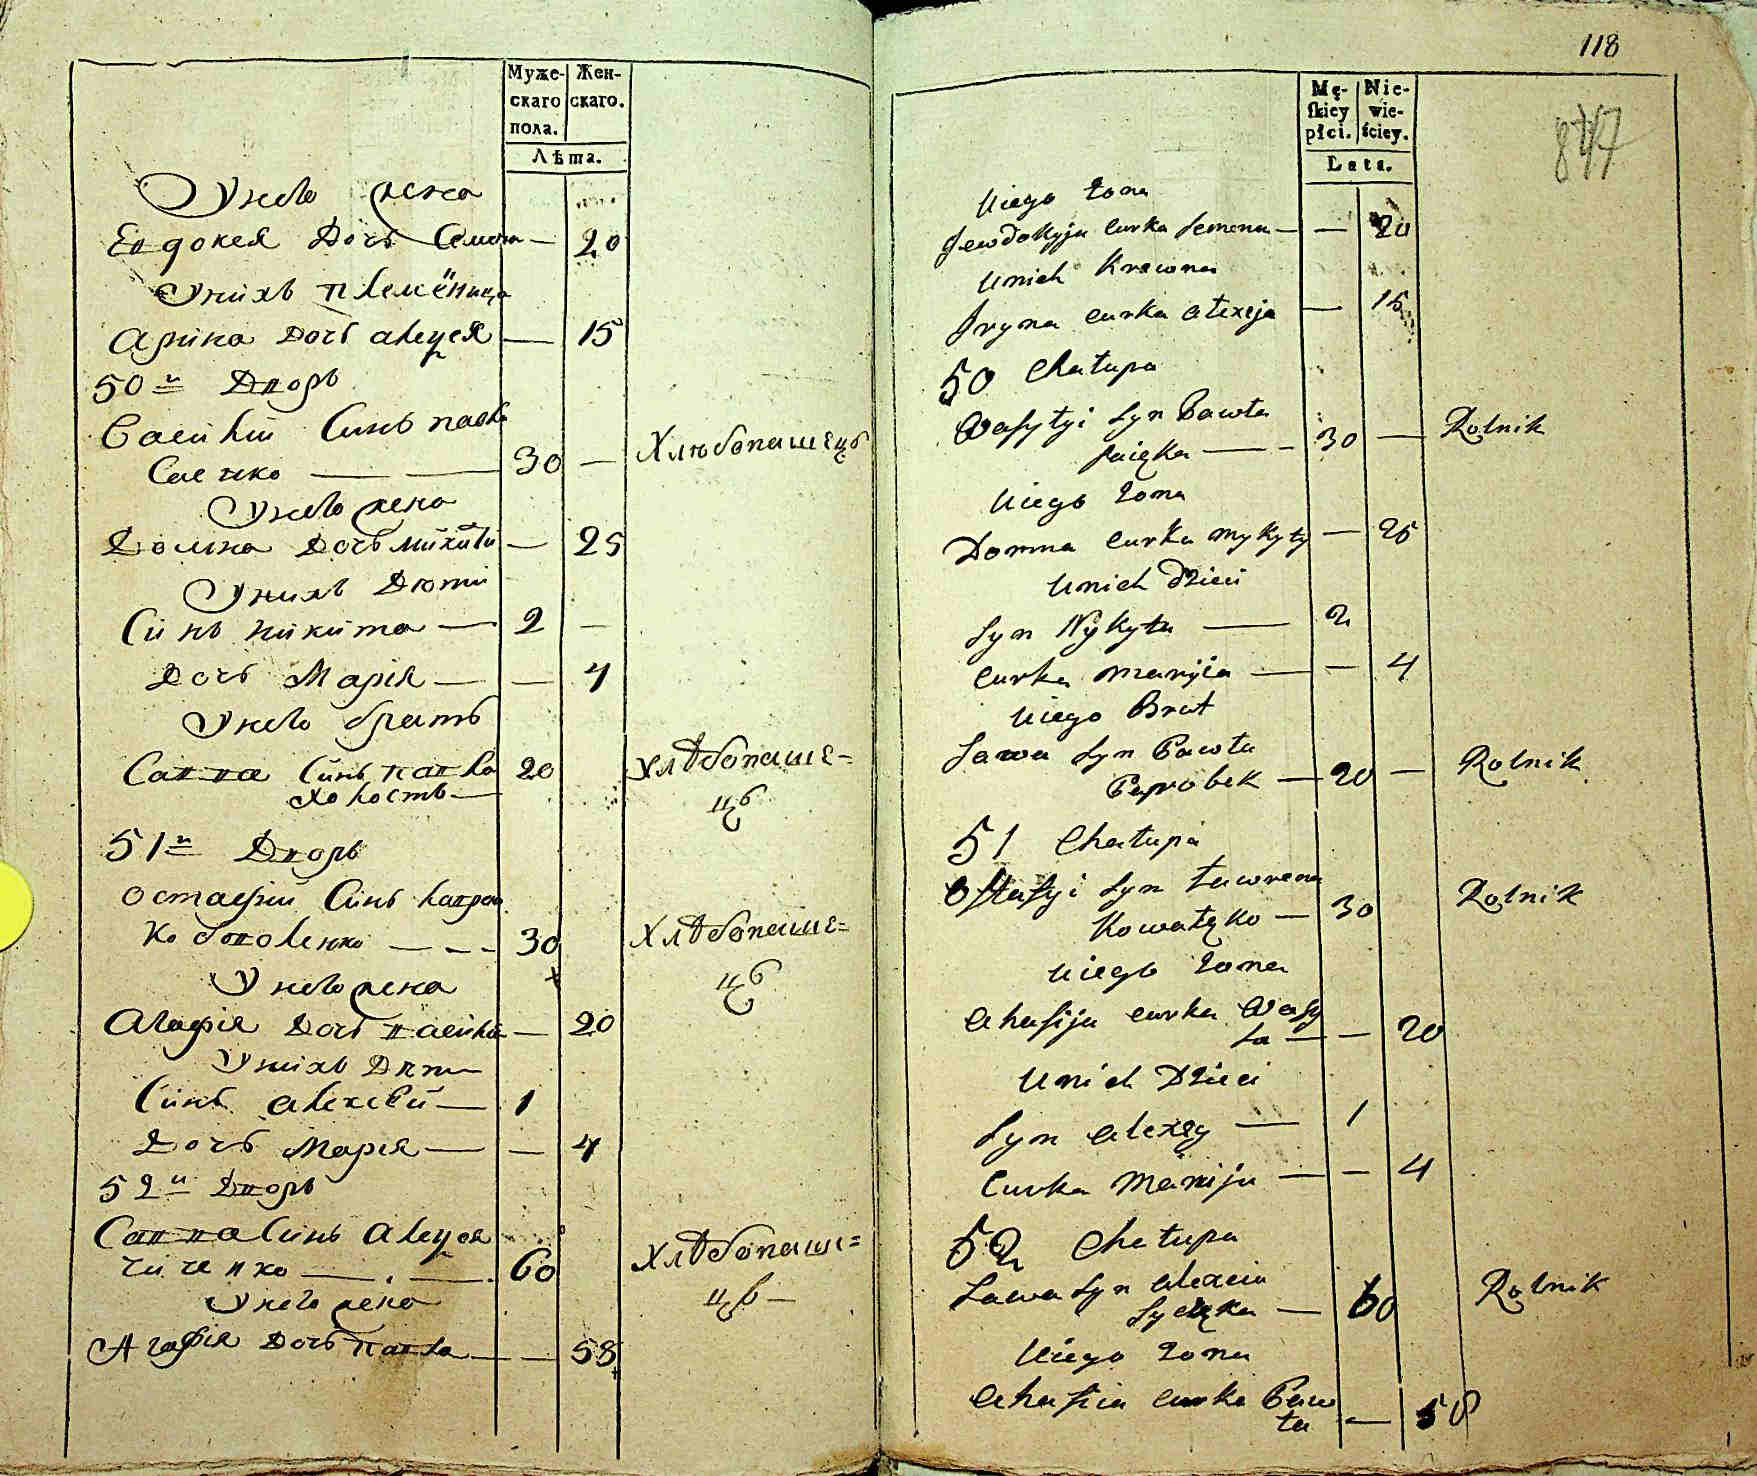 Муже-
скаго
пола.
Жен-
скаго.
Лѣта.
Унево жена
Евдокея Дочь Семена — 20
Унихъ племёница
Арина Дочь алеѯея — 15
50й Дворъ
Василий Синъ павла
30 — Хлюбопашецъ
Унево жена
Домна Дочь микити — 25
Унихъ Дюти
Синъ никита — 2 —
Дочь Марія — — 4
Унево братъ
Савва Синъ павла 20 Хлѣбопаше=
холостъ — цъ
51й Дворъ
остафий Синъ лаврена
Коваленко — — - 30 Хлѣбопаше=
Унево жена цъ
Агафія Дочь василя — 20
Унихъ Дѣти
Синъ алексѣй — 1
Дочь Марія — — 4
52й Дворъ
Савва Синъ алеѯея
60 Хлѣбопаше=
Унево жена цъ —
Агафія Дочь павла — — 58
118
847
Mę-
ſkiey
płci.
Nie-
wie-
ściey.
Lata.
Uiego Żona
Jewdokyja Curka Semena — — 20
Unich Krewna
Jryna Curka Alexeja — 15
50 Chałupa
Wasylyi Syn Pawła
Saięka — - 30 — Rolnik
Uiego Żona
Domna Curka Mykyty — 25
Unich Dzieci
Syn Nykyta — 2
Curka Maryia — — 4
Uiego Brat
Sawa Syn Pawła
Parobek — 20 — Rolnik
51 Chałupa
Ostafyi Syn Ławrena
Kowalęko — 30 Rolnik
Uiego Żona
Ahafija Curka Wasy
la — — 20
Unich Dzieci
Syn Alexey — 1
Curka Marija — — 4
52 Chałupa
Sawa Syn Alexeia
— 60 Rolnik
Uiego Żona
Ahafiia Curka Paw
ła — 58